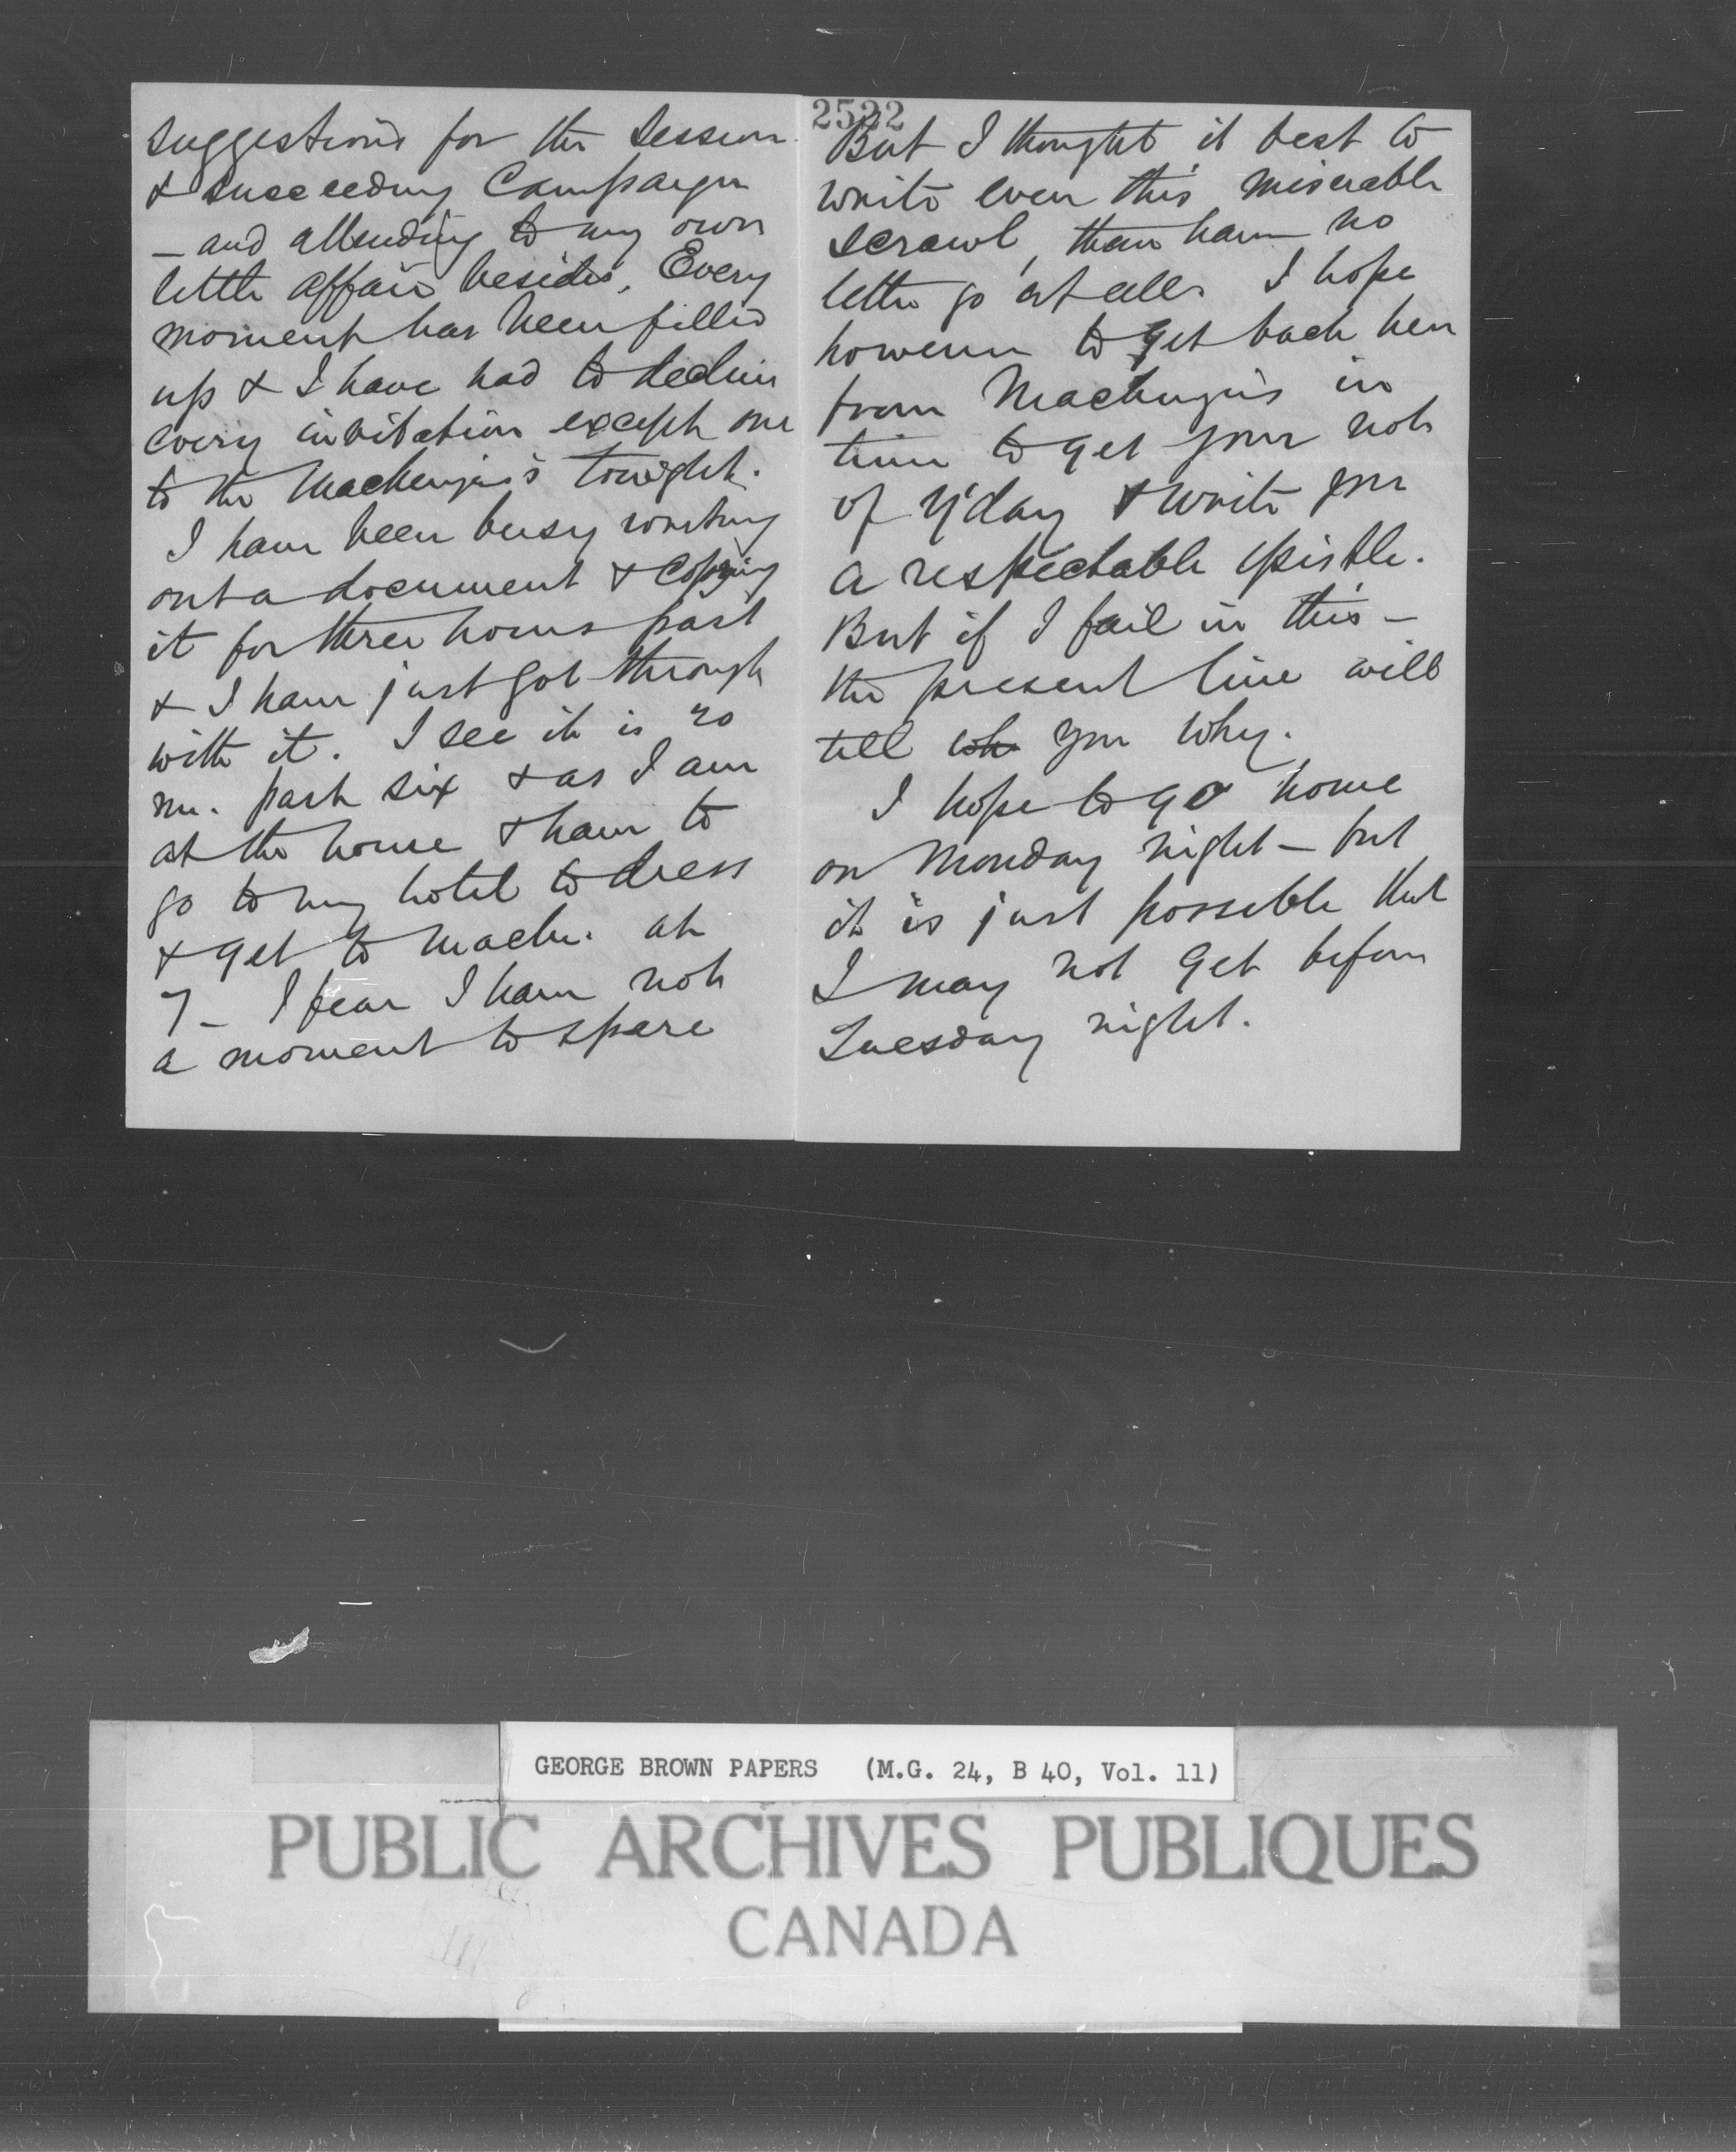 suggestions for the Session
& succeeding Campaign
— and attending to my own
little affairs besides. Every
moment has been filled
up & I have had to decline
every invitation except one
to the Mackenzie's tonight.
I have been busy writing
out a document & copying
it for three hours past
& I have just got through
with it. I see it is 20
mi. past six & as I am
at the house & have to
go to my hotel to dress
& get to Mack. at
7 — I fear I have not
a moment to spare
2522
But I thought it best to
write even this miserable
scrawl, than have no
letter go at all. I hope
however to get back here
from Mackenzie's in
time to get your note
of y'day & write you
a respectable epistle.
But if I fail in this —
the present line will
tell wh you why.
I hope to go home
on Monday night — but
it is just possible that
I may not get before
Tuesday night.
GEORGE BROWN PAPERS (M.G. 24, B 40, Vol. 11)
PUBLIC ARCHIVES PUBLIQUES
CANADA